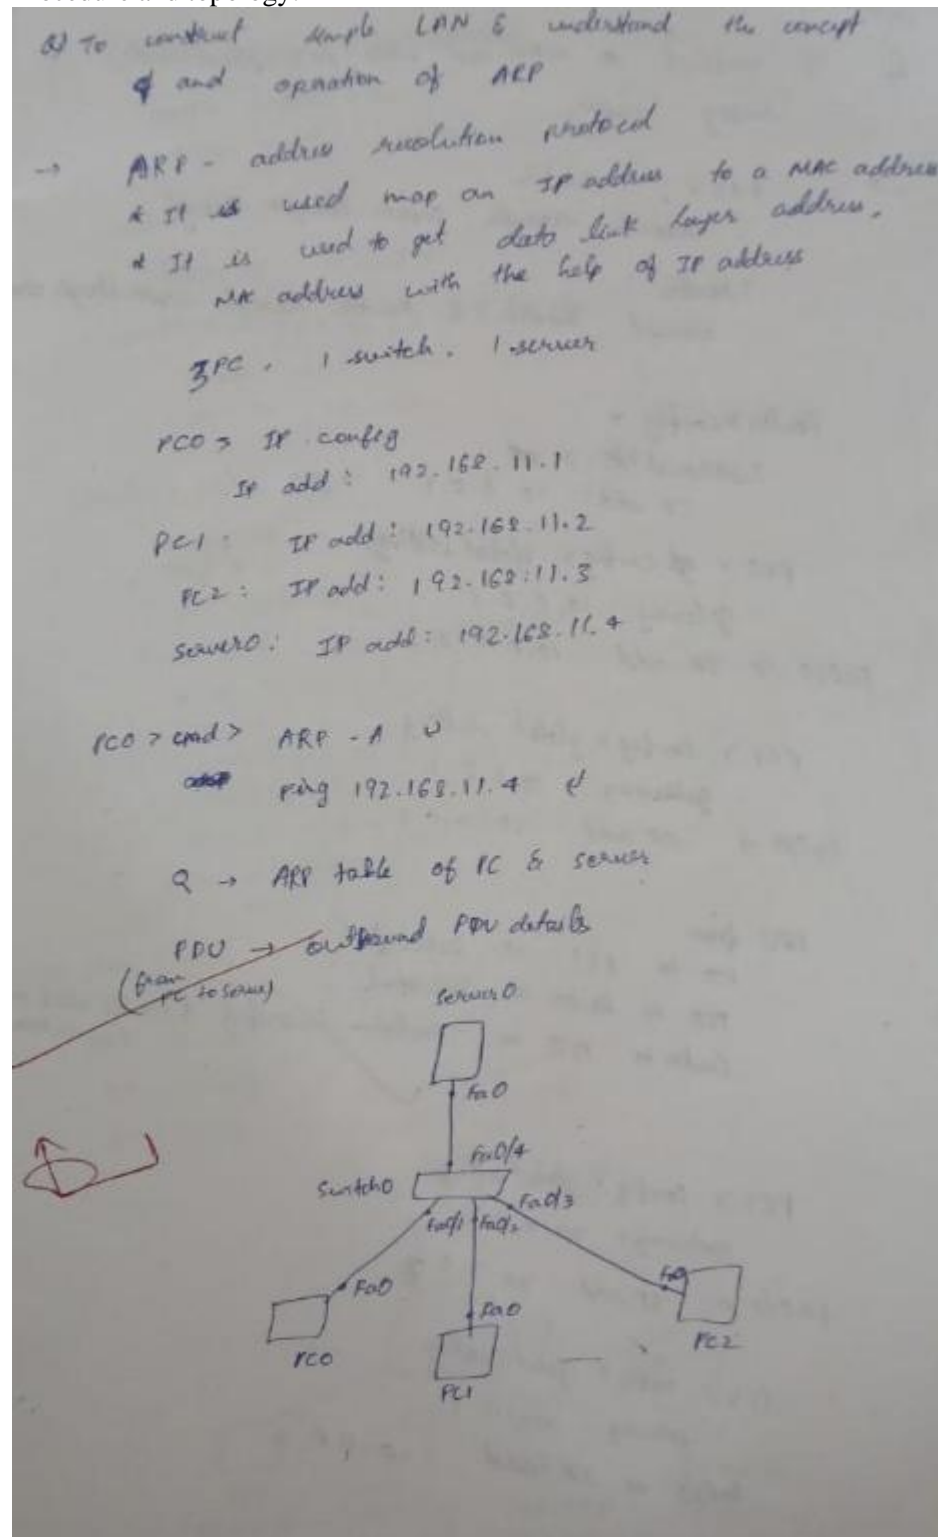 Procedure and topology:
Q) To construct simple LAN & understand the concept
and operation of ARP
→ ARP - address resolution protocol
* It is used map an IP address to a MAC address
* It is used to get data link layer address,
MAC address with the help of IP address
3PC, 1 switch, 1 server
PC0 > IP config
IP add: 192.168.11.1
PC1: IP add: 192.168.11.2
PC2: IP add: 192.168.11.3
Server0: IP add: 192.168.11.4
PC0 > cmd > ARP -A
ping 192.168.11.4
Q → ARP table of PC & server
PDU → outbound PDU details
(from
PC to server)
Server0
Fa0
Fa0/4
Switch0
Fa0/3
Fa0/1 Fa0/2
Fa0
Fa0
Fa0
PC0
PC1
PC2